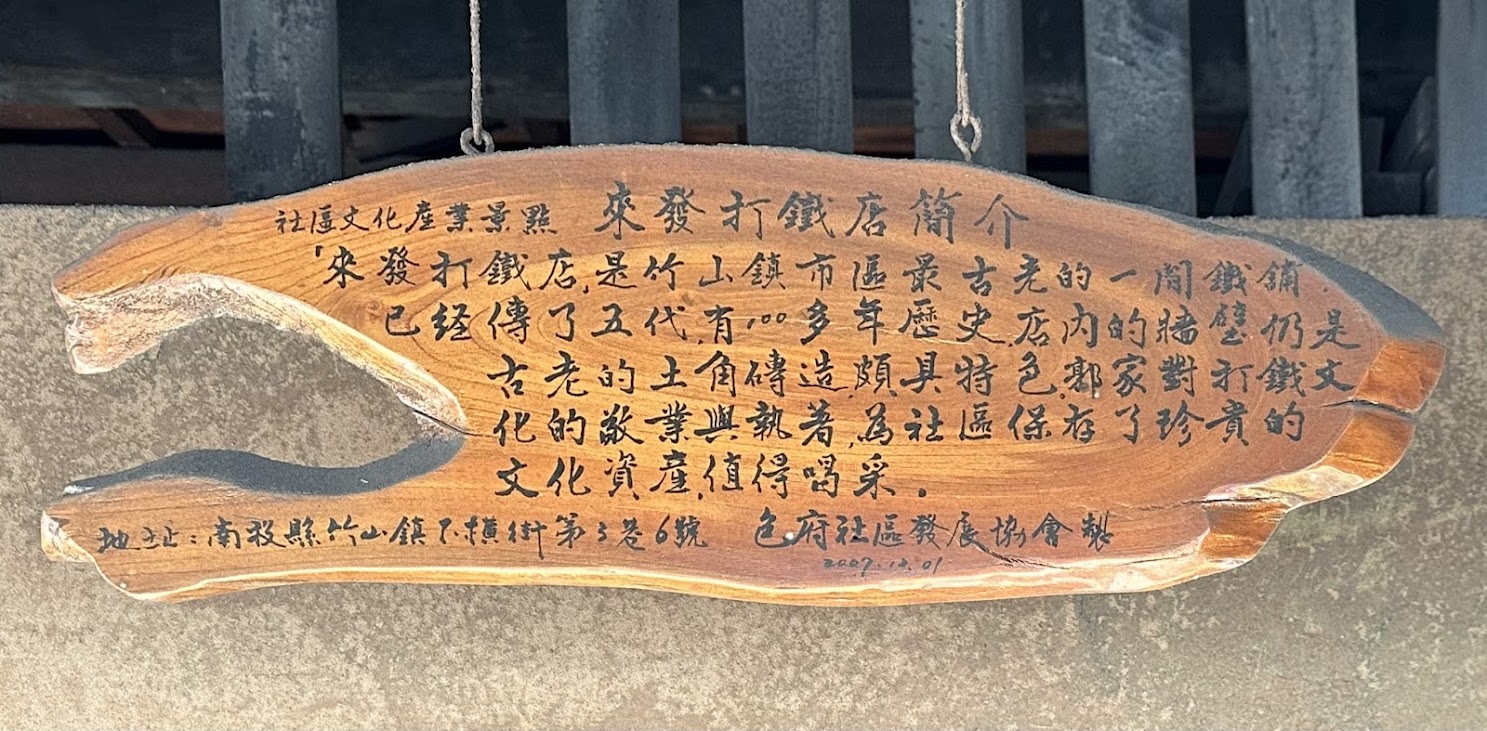 社區文化產業景點 來發打鐵店簡介
「來發打鐵店,是竹山鎮市區最古老的一間鐵舖,
已経傳了五代,有100多年歷史,店內的牆壁仍是
古老的土角磚造,頗具特色,郭家對打鐵文
化的敬業與執著,為社區保存了珍貴的
文化資產,值得喝采。
地址:南投縣竹山鎮下橫街第3巷6號 色府社區發展協會製
2007.12.01